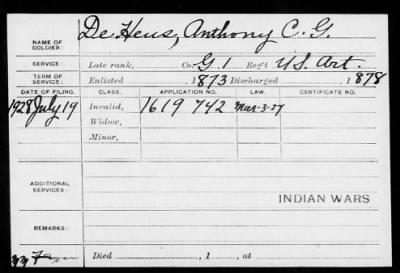 NAME OF SOLDIER: De Heus, Anthony C. G.
SERVICE: Late rank, Co. G. 1 Reg't U.S. Art.
TERM OF SERVICE: Enlisted , 1873 Discharged , 1878
DATE OF FILING. CLASS. APPLICATION NO. LAW. CERTIFICATE NO.
1928 July 19 Invalid, 1619 742 Mar-3-27
Widow,
Minor,
ADDITIONAL SERVICES:
INDIAN WARS
REMARKS:
Died , 1 , at